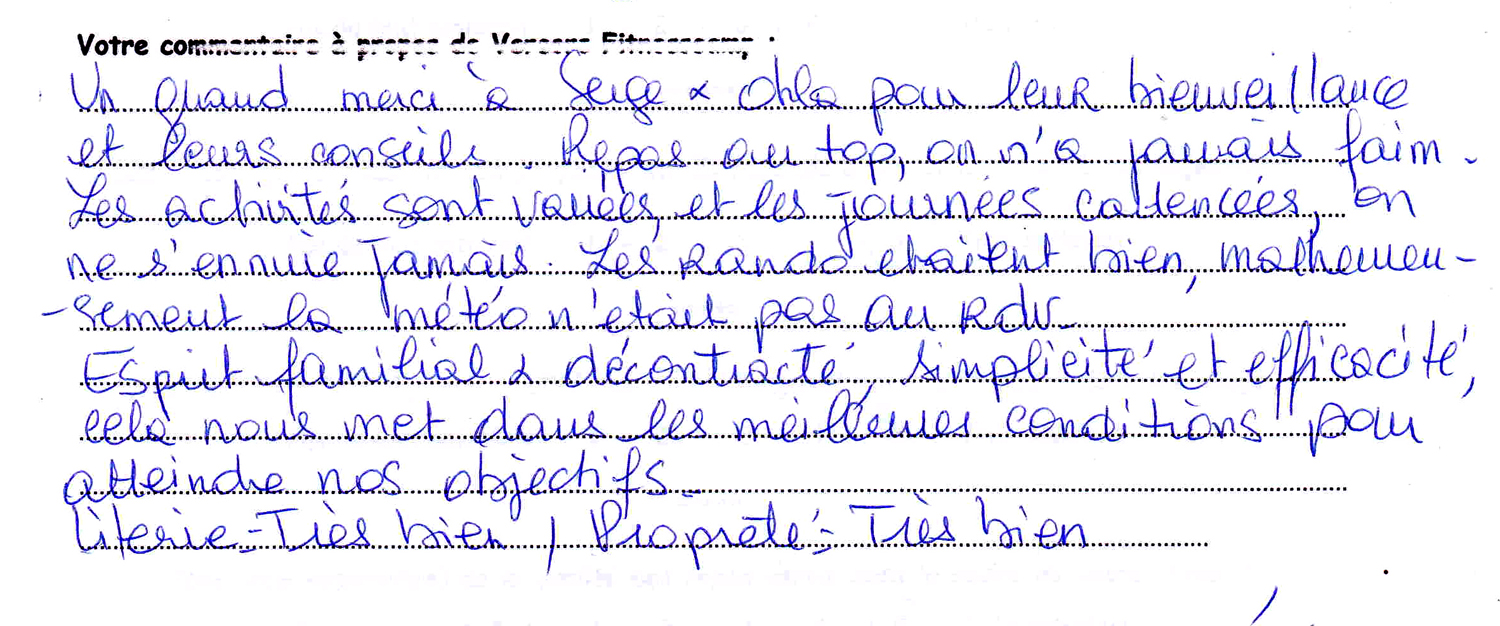 Votre commentaire à propos de Vercors Fitnesscamp :
Un grand merci à Serge & Ohla pour leur bienveillance
et leurs conseils. Repas au top, on n'a jamais faim.
Les activités sont variées, et les journées cadencées, on
ne s'ennuie jamais. Les Rando etaient bien, malheureu-
-sement la météo n'était pas au RdV.
Esprit familial & décontracté, simplicité et efficacité,
cela nous met dans les meilleures conditions pour
atteindre nos objectifs.
Literie = Très bien / Propreté = Très bien